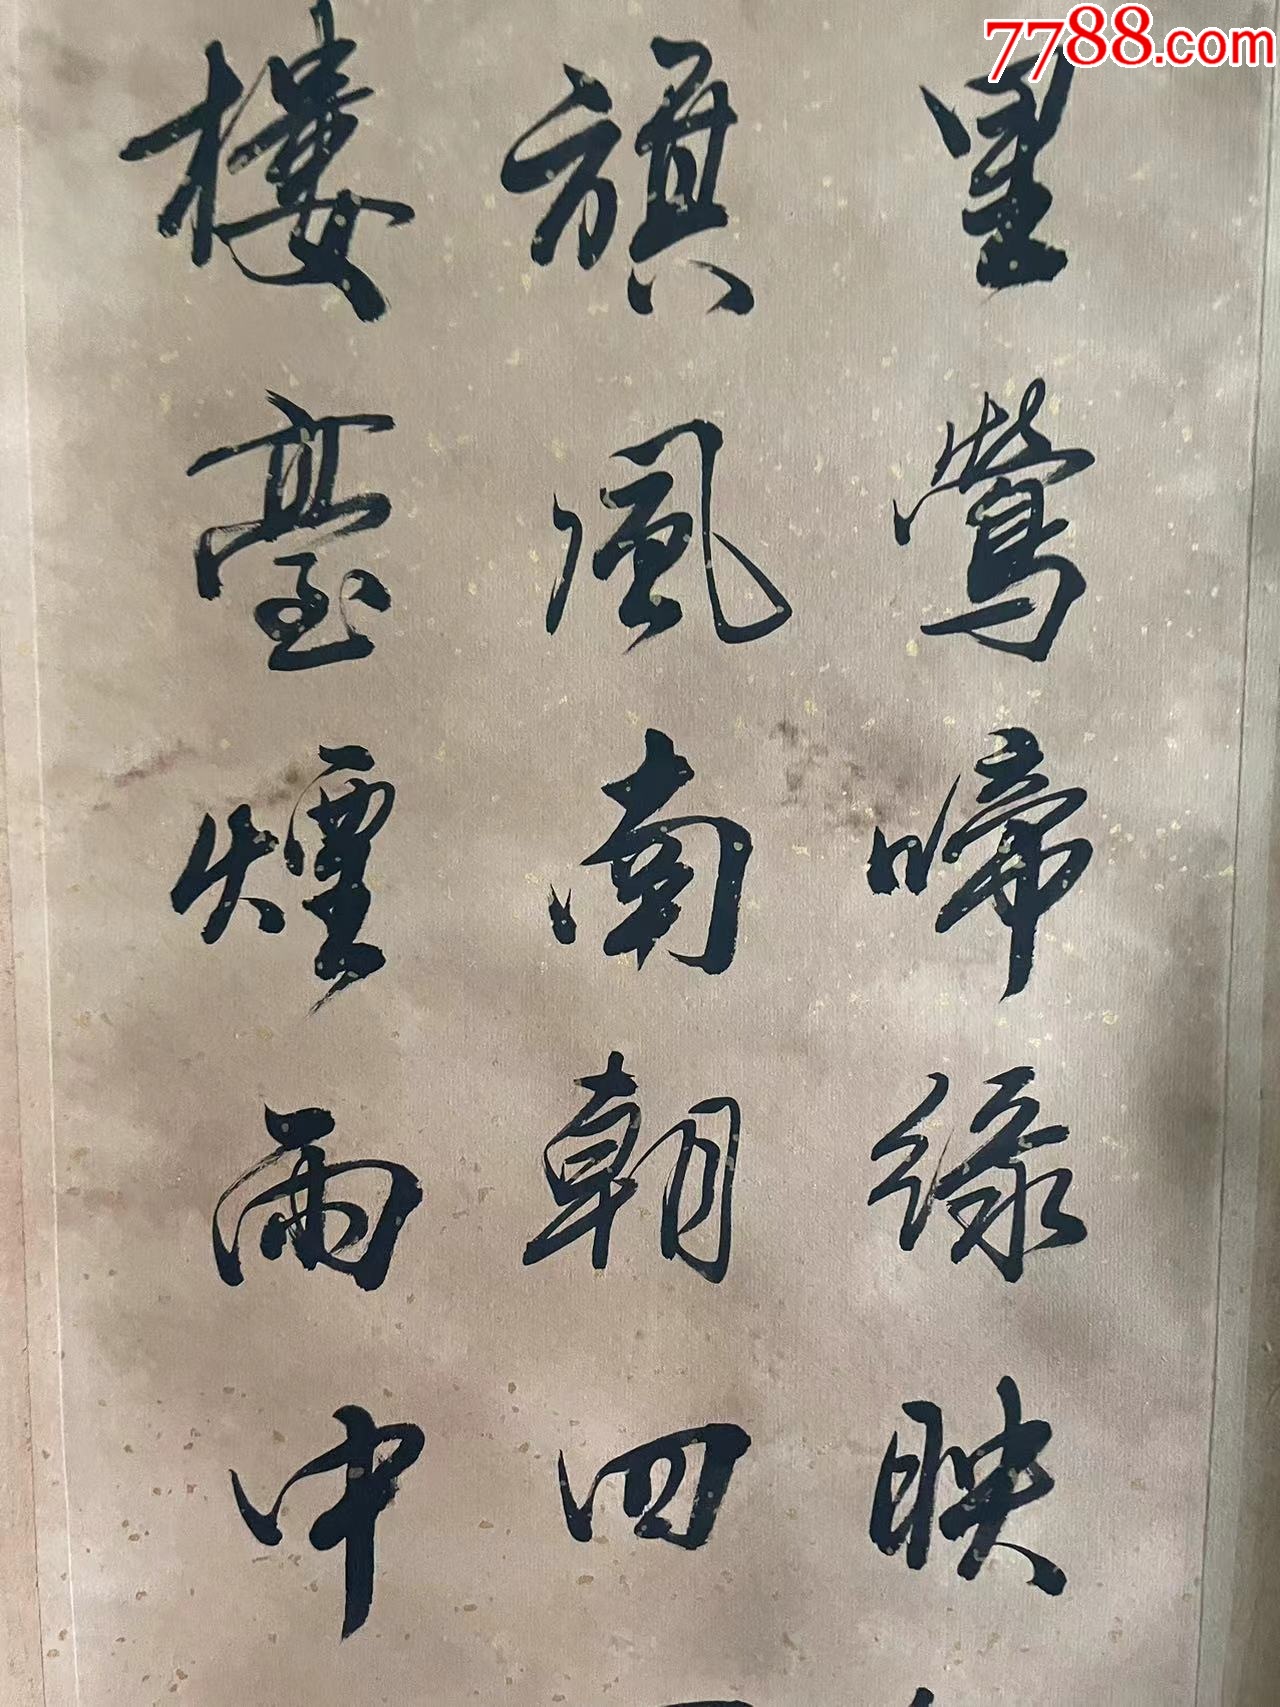 7788.com
里鶯啼綠映
旗風南朝四
樓臺煙雨中